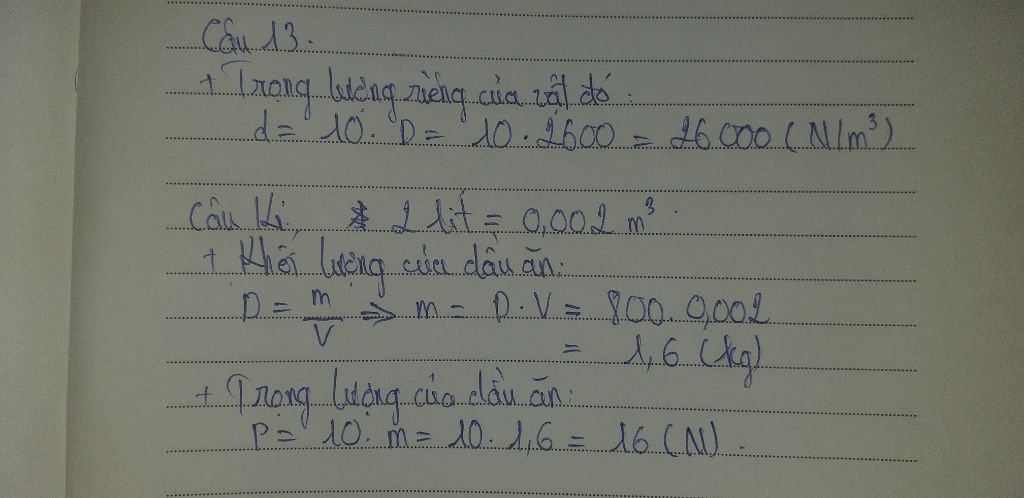 Câu 13.
+ Trọng lượng riêng của vật đó:
d = 10. D = 10. 2600 = 26000 (N/m³)
Câu 2 lít = 0,002 m³.
+ Khối lượng của dầu ăn:
D = m/V => m = D.V = 800. 0,002
= 1,6 (kg)
+ Trọng lượng của dầu ăn:
P = 10. m = 10. 1,6 = 16 (N).